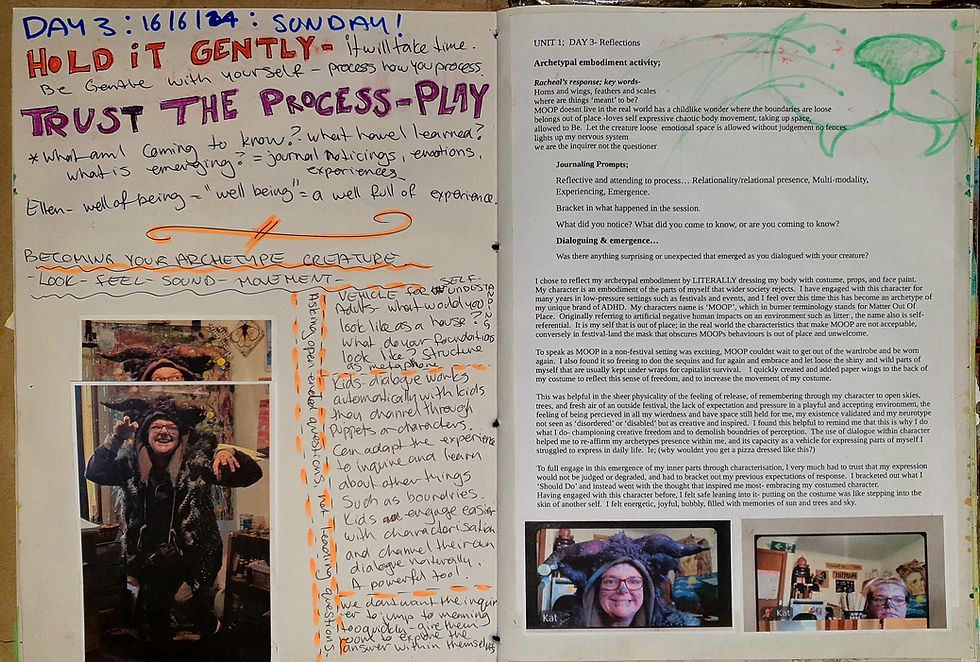 DAY 3 : 16/6/24 : SUNDAY!
HOLD iT GENTLY - it will take time.
Be Gentle with yourself - process how you process.
TRUST THE PROCESS - PLAY
* What am I coming to know? What have I learned?
what is emerging? = journal noticings, emotions,
experiences
Ellen - well of being = "well being" = a well full of experience.
BECOMING YOUR ARCHETYPE CREATURE
- LOOK - FEEL - SOUND - MOVEMENT -
Asking open ended questions, not leading questions -
VEHICLE for SELF-
Adults - what would you
look like as a house?
What do your foundations
look like? Structure
as metaphor
Kids - dialogue works
automatically with kids
they channel through
puppets or characters.
Can adapt the experience
to inquire and learn
about other things
Such as boundries.
Kids engage easier
with characterisation
and channel their own
dialogue naturally.
A powerful tool.
We dont want the inquirer
to jump to meaning
too quickly - give them
room to explore the
answer within themselves
UNIT 1;  DAY 3- Reflections
Archetypal embodiment activity;
Racheal's response; key words-
Horns and wings, feathers and scales
where are things 'meant' to be?
MOOP doesnt live in the real world has a childlike wonder where the boundaries are loose
belongs out of place -loves self expressive chaotic body movement, taking up space,
allowed to Be.  Let the creature loose  emotional space is allowed without judgement no fences
lights up my nervous system
we are the inquirer not the questioner
Journaling Prompts;
Reflective and attending to process… Relationality/relational presence, Multi-modality,
Experiencing, Emergence.
Bracket in what happened in the session.
What did you notice? What did you come to know, or are you coming to know?
Dialoguing & emergence…
Was there anything surprising or unexpected that emerged as you dialogued with your creature?
I chose to reflect my archetypal embodiment by LITERALLY dressing my body with costume, props, and face paint.
My character is an embodiment of the parts of myself that wider society rejects.  I have engaged with this character for
many years in low-pressure settings such as festivals and events, and I feel over time this has become an archetype of
my unique brand of ADHD.  My characters name is 'MOOP', which in former terminology stands for Matter Out Of
Place.  Originally referring to artificial negative human impacts on an environment such as litter , the name also is self-
referential.  It is my self that is out of place; in the real world the characteristics that make MOOP are not acceptable,
conversely in festival-land the mask that obscures MOOPs behaviours is out of place and unwelcome.
To speak as MOOP in a non-festival setting was exciting, MOOP couldnt wait to get out of the wardrobe and be worn
again.  I also found it so freeing to don the sequins and fur again and embrace and let loose the shiny and wild parts of
myself that are usually kept under wraps for capitalist survival.   I quickly created and added paper wings to the back of
my costume to reflect this sense of freedom, and to increase the movement of my costume.
This was helpful in the sheer physicality of the feeling of release, of remembering through my character to open skies,
trees, and fresh air of an outside festival, the lack of expectation and pressure in a playful and accepting environment, the
feeling of being percieved in all my wierdness and have space still held for me, my existence validated and my neurotype
not seen as 'disordered' or 'disabled' but as creative and inspired.  I found this helpful to remind me that this is why I do
what I do- championing creative freedom and to demolish boundaries of perception.  The use of dialogue within character
helped me to re-affirm my archetypes presence within me, and its capacity as a vehicle for expressing parts of myself I
struggled to express in daily life.  Ie; (why wouldnt you get a pizza dressed like this?)
To full engage in this emergence of my inner parts through characterisation, I very much had to trust that my expression
would not be judged or degraded, and had to bracket out my previous expectations of response.  I bracketed out what I
'Should Do' and instead went with the thought that inspired me most- embracing my costumed character.
Having engaged with this character before, I felt safe leaning into it- putting on the costume was like stepping into the
skin of another self.  I felt energetic, joyful, bubbly, filled with memories of sun and trees and sky.
Kat
Kat